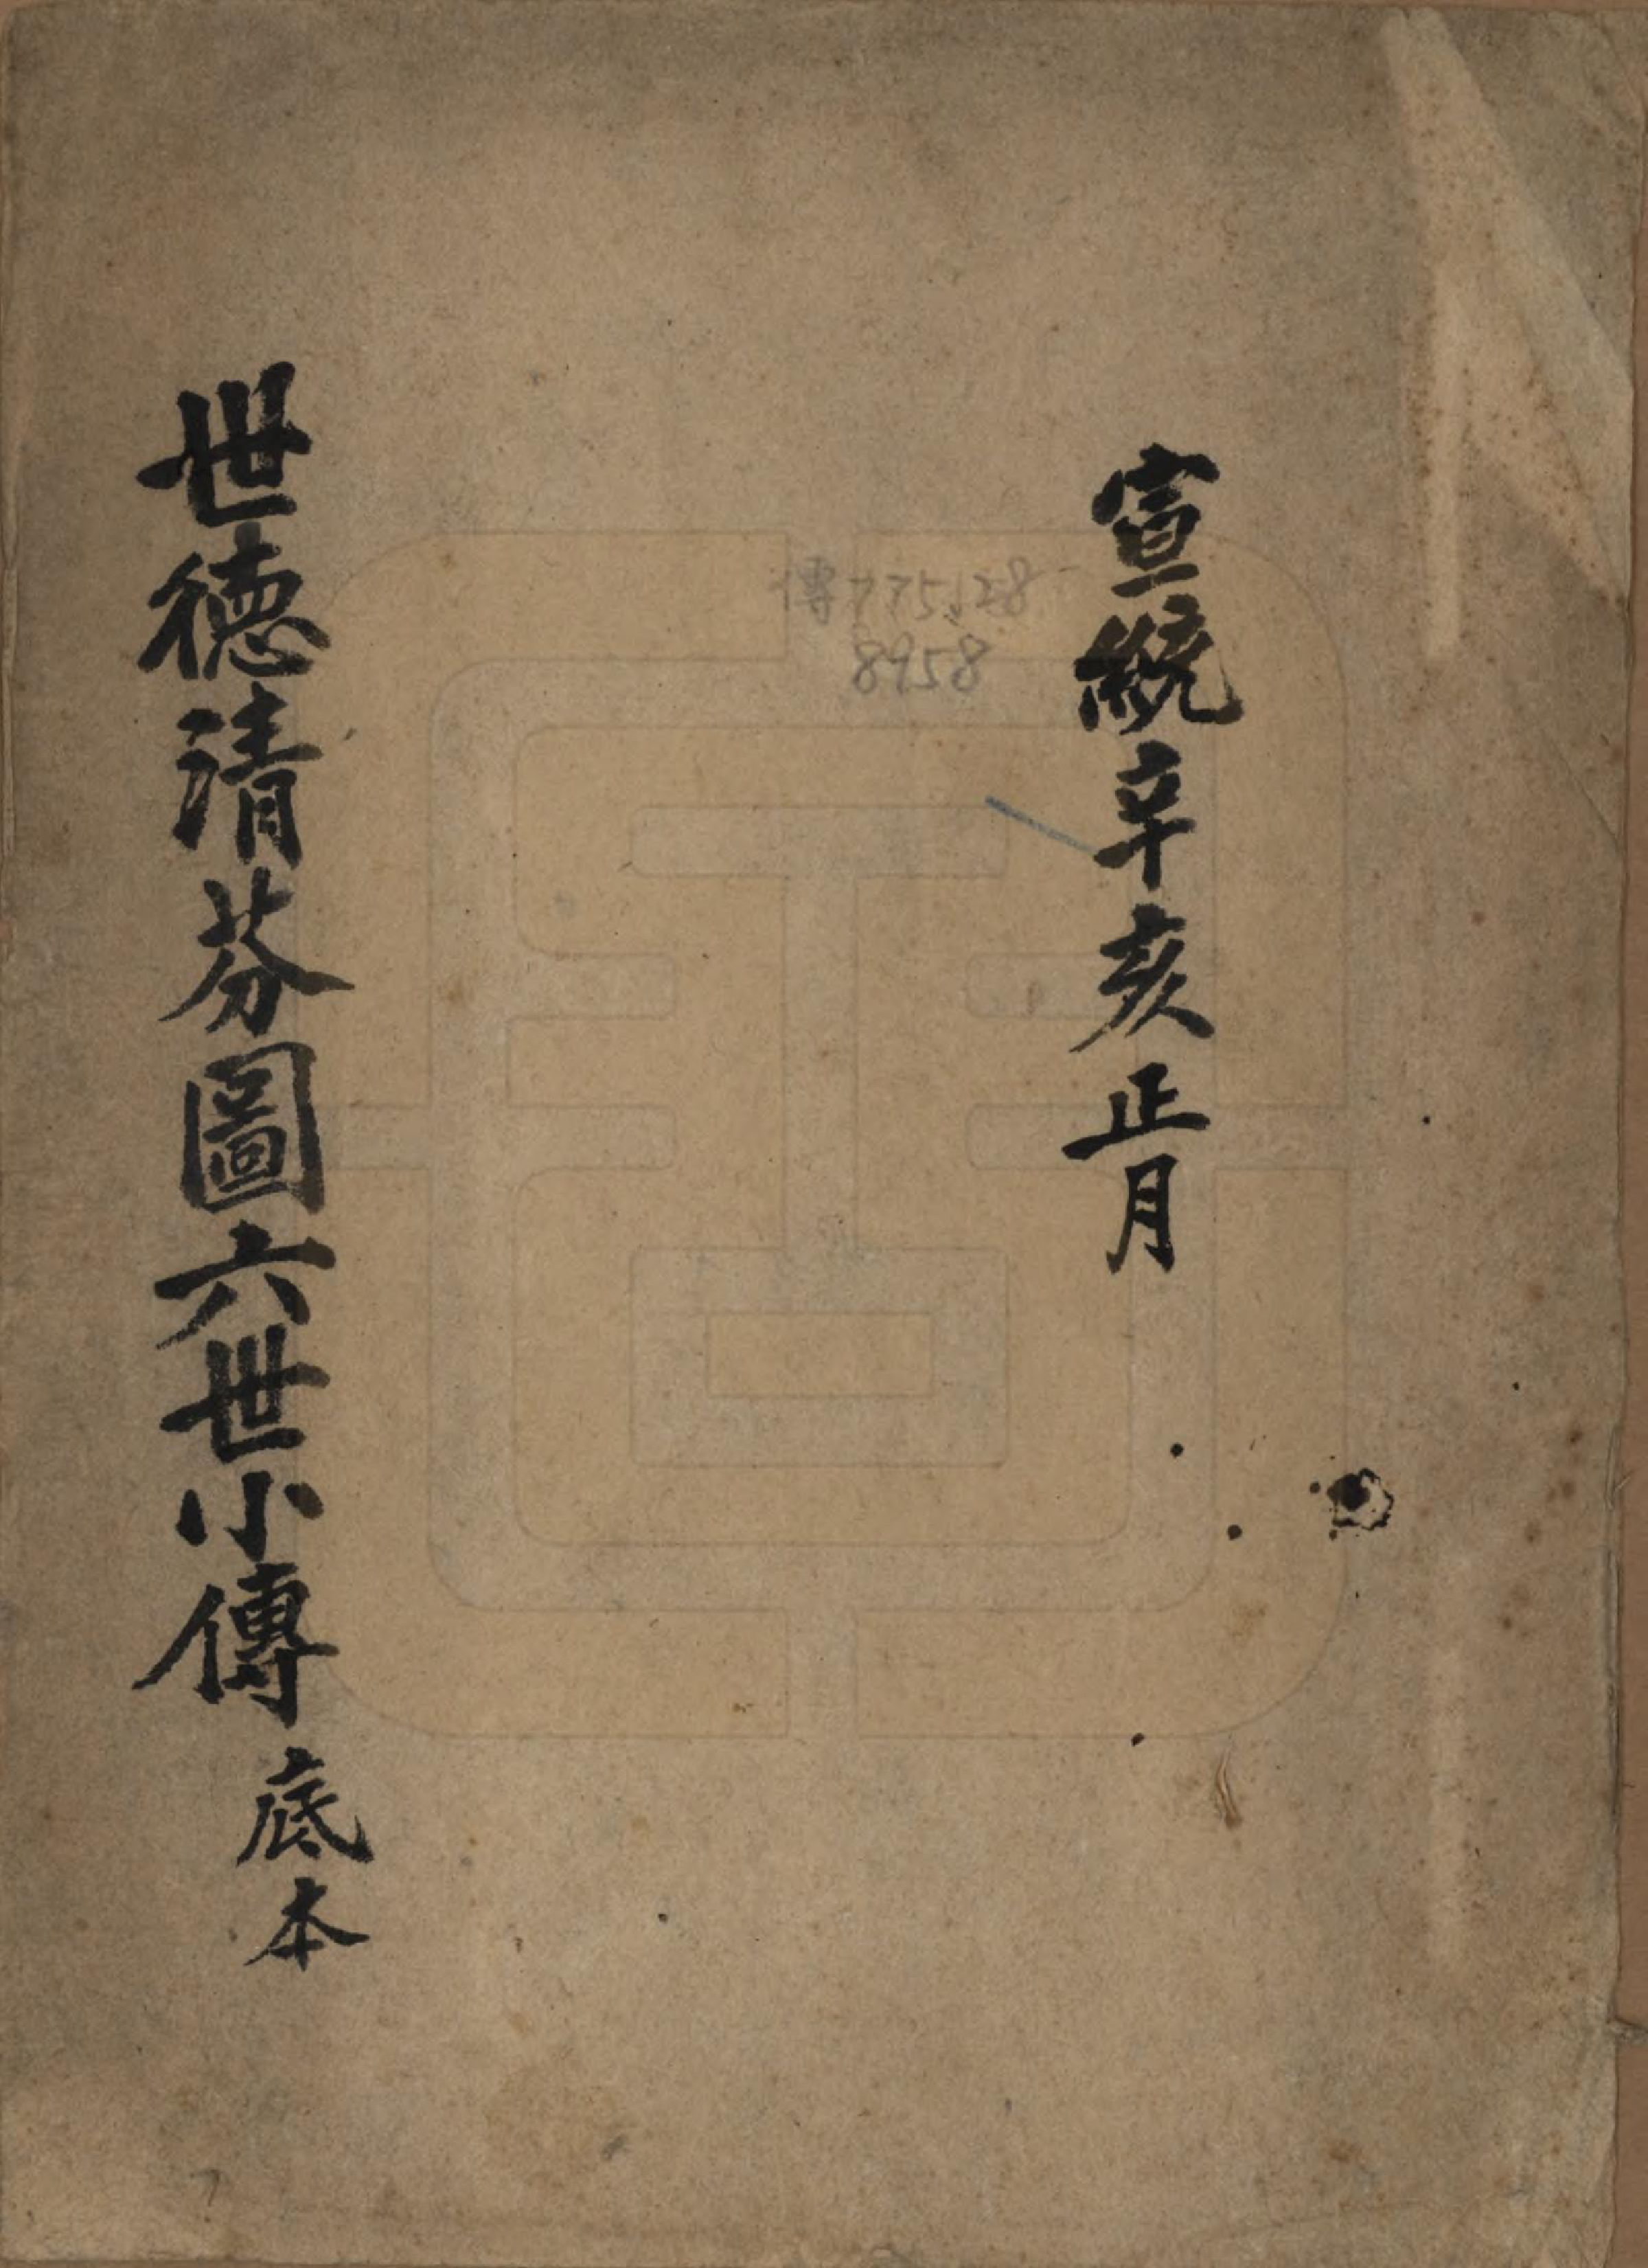 宣統辛亥正月
傳775.128
8958
世德清芬圖六世小傳底本